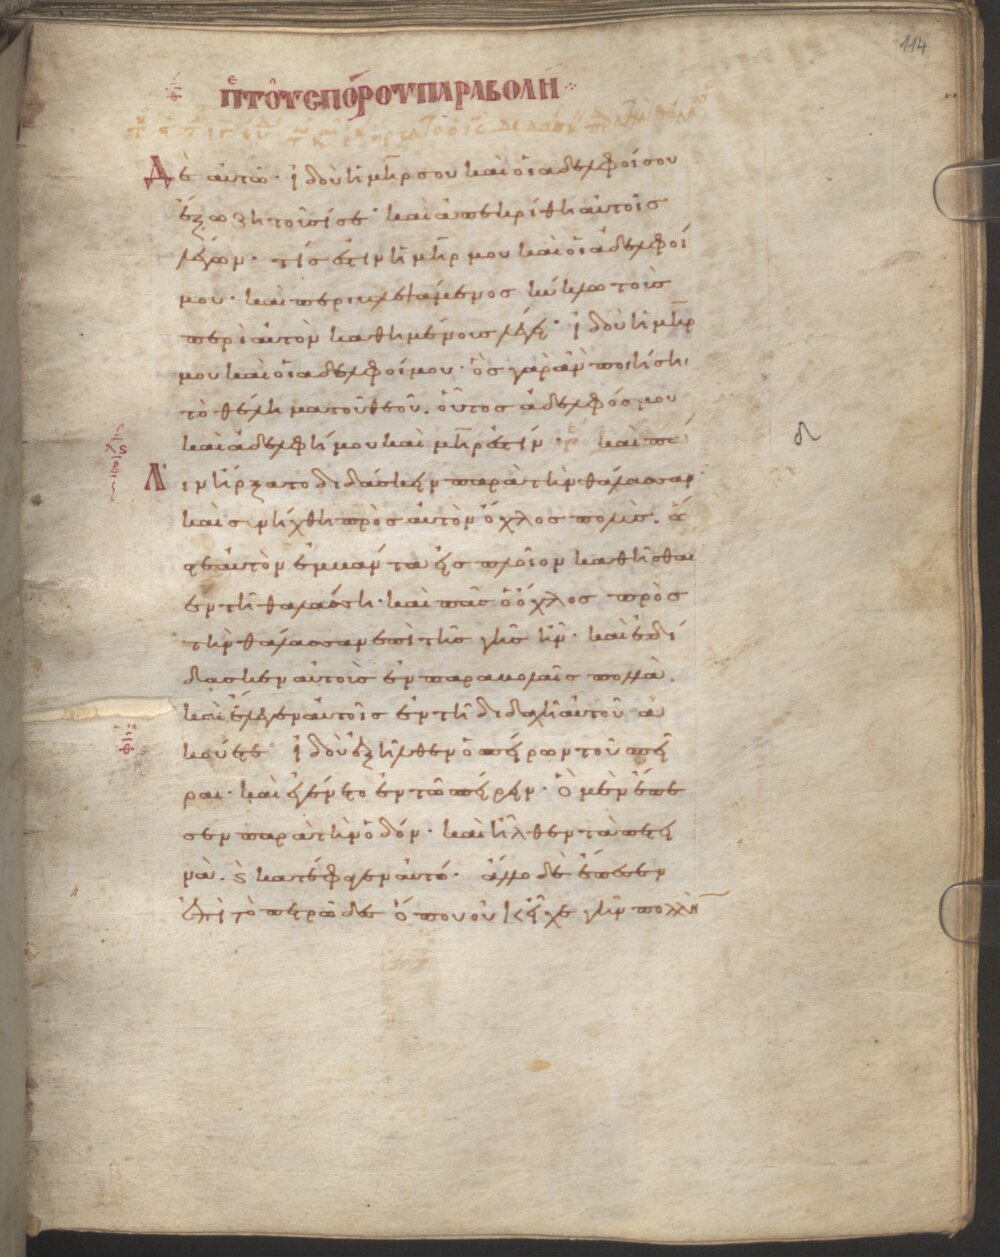 114
π τοῦ σπόρου παραβολή
Δὲ αὐτῶ· ἰδοὺ ἡ μηρ σου καὶ οἱ ἀδελφοί σου
ἔξω ζητοῦσί σε· καὶ ἀπεκρίθη αὐτοῖς
λέγων· τίς ἐστιν ἡ μηρ μου καὶ οἱ ἀδελφοί
μου· καὶ περιβλεψάμενος κύκλω τοὺς
περὶ αὐτὸν καθημένους λέγει· ἰδοὺ ἡ μηρ
μου καὶ οἱ ἀδελφοί μου· ὃς γὰρ ἂν ποιήση
τὸ θέλημα τοῦ θεοῦ. οὗτος ἀδελφός μου
καὶ ἀδελφή μου καὶ μηρ ἐστίν· καὶ πά
λιν ἤρξατο διδάσκειν παρὰ τὴν θάλασσαν·
καὶ συνήχθη πρὸς αὐτὸν ὄχλος πολύς. ὥ
στε αὐτὸν ἐμβάντα εἰς πλοῖον καθῆσθαι
ἐν τῆ θαλάσση· καὶ πᾶς ὁ ὄχλος πρὸς
τὴν θάλασσαν ἐπὶ τῆς γῆς ἦν· καὶ ἐδί
δασκεν αὐτοῖς ἐν παραβολαῖς πολλά.
καὶ ἔλεγεν αὐτοῖς ἐν τῆ διδαχῆ αὐτοῦ ἀ
κούετε· ἰδοὺ ἐξῆλθεν ὁ σπείρων τοῦ σπεῖ
ραι· καὶ ἐγένετο ἐν τῶ σπείρειν· ὃ μὲν ἔπε
σεν παρὰ τὴν ὁδόν· καὶ ἦλθεν τὰ πετει
νὰ. ϗ κατέφαγεν αὐτό· ἄλλο δὲ ἔπεσεν
ἐπὶ τὸ πετρῶδες ὅπου οὐκ εἶχε γῆν πολλὴν